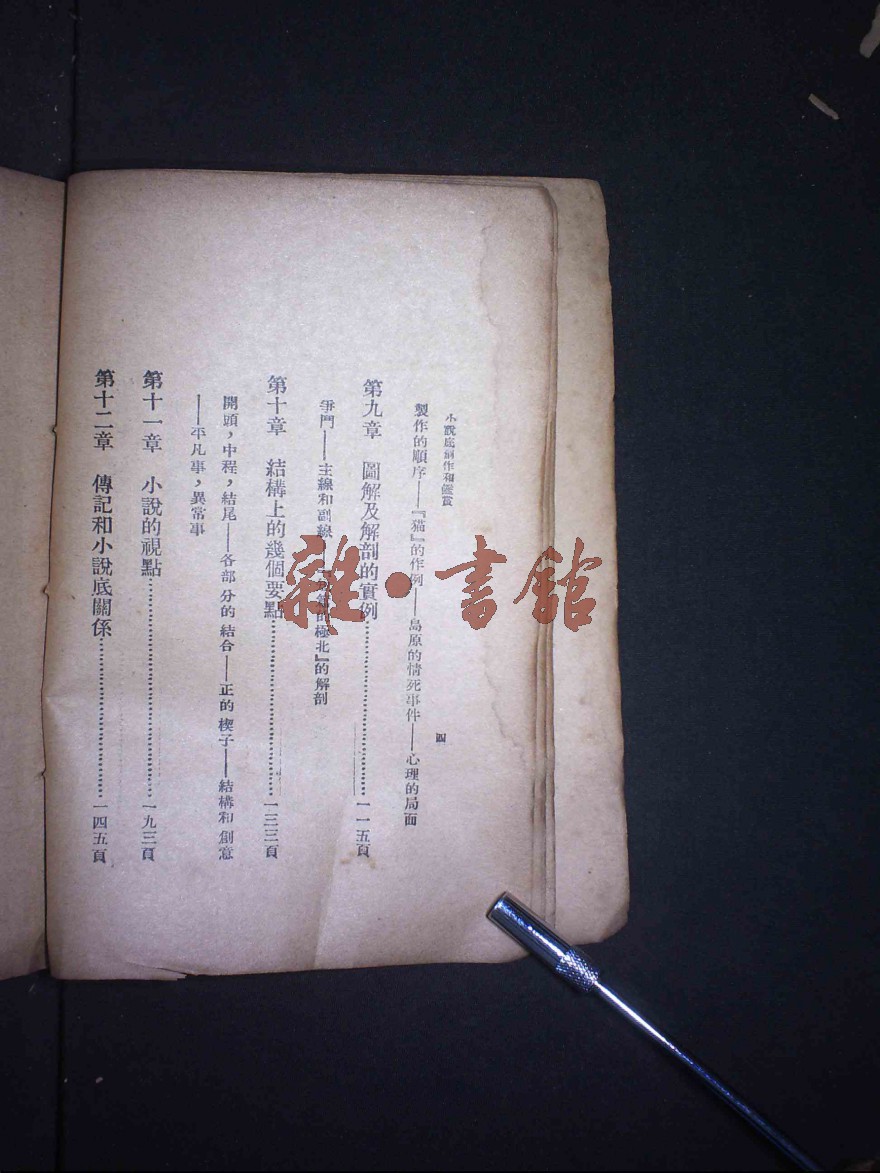 小說底創作和鑑賞
四
製作的順序——『猫』的作例——島原的情死事件——心理的局面
第九章 圖解及解剖的實例……一一五頁
爭鬥——主線和副線——極北』的解剖
第十章 結構上的幾個要點……一三三頁
開頭，中程，結尾——各部分的結合——正的楔子——結構和創意
——平凡事，異常事
第十一章 小說的視點……一九三頁
第十二章 傳記和小說底關係……一四五頁
雜·書館